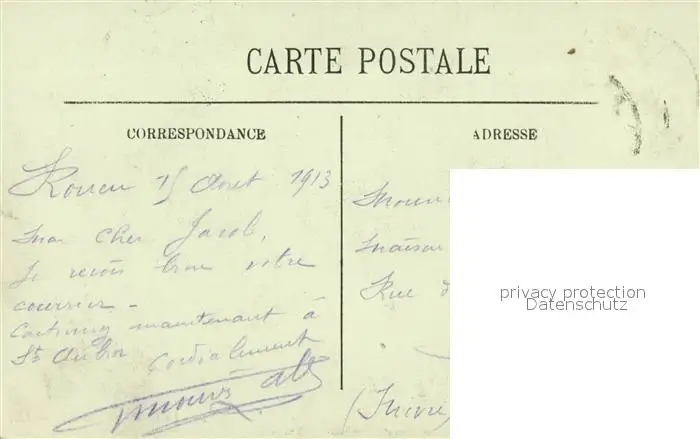 CARTE POSTALE
CORRESPONDANCE
ADRESSE
Rouen 15 Aout 1913
Mon cher Jacob,
Je reçois bien votre
courrier -
Continuez maintenant à
St Aubin
Cordialement
Maison
Rue d
(Suivre)
privacy protection
Datenschutz